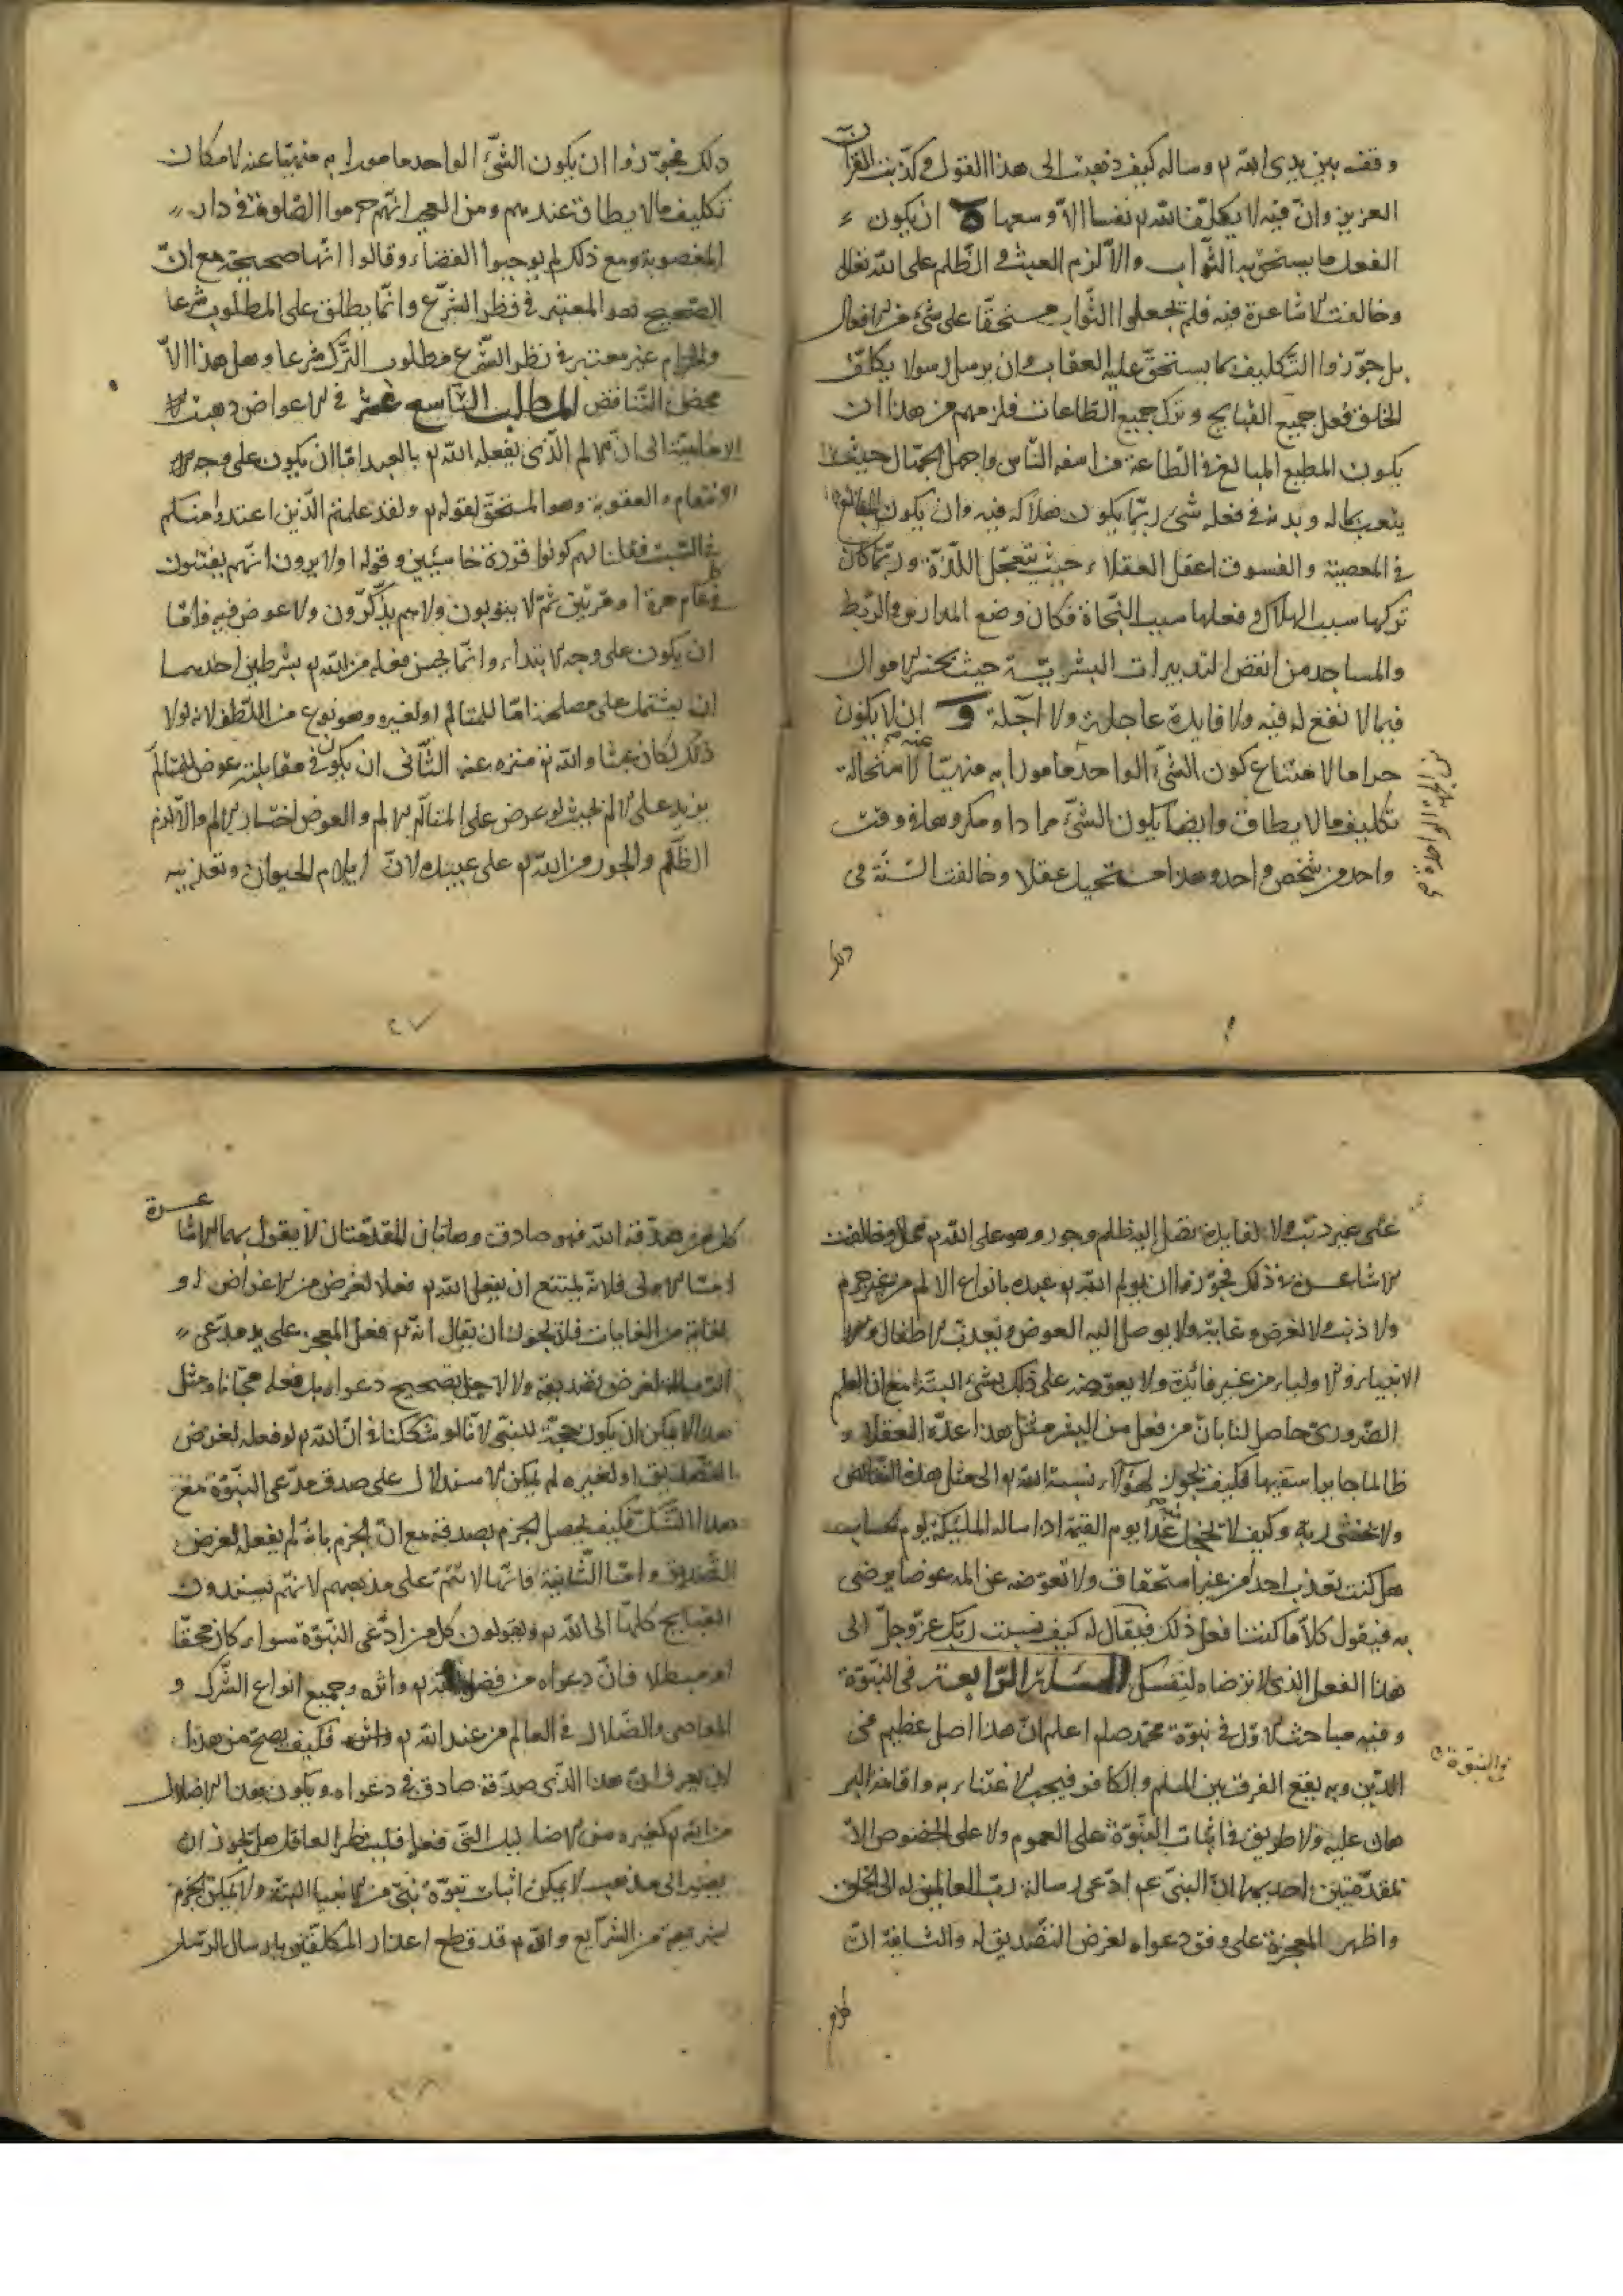 وقفه بين يدى الله تم وساله كيف ذهبت الى هذا القول وكذبت القرآن
العزيز وانّ فيه لا يكلّف الله نفسا الاّ وسعها ه ان يكون
الفعل ما يستحق به الثّواب والاّ لزم العبث و الظّلم على الله تعالى
وخالفت الاشاعرة فيه فلم يجعلوا الثّواب مستحقّا على شئ من الافعال
بل جوّزوا التّكليف بما يستحقّ عليه العقاب وان يرسل رسولا يكلّف
الخلق فعل جميع القبايح و ترك جميع الطّاعات فلزمهم من هذا ان
يكون المطيع المبالغ فى الطّاعة من اسفه النّاس واجهل الجهّال حيث
يتعب ماله و بدنه فى فعله شئ ربّما يكون هلاكه فيه وان يكون المبالغ
فى المعصية والفسوق اعقل العقلاء حيث يتعجّل اللّذّة و ربّما كان
تركها سبب الهلاك و فعلها سبب النّجاة فكان وضع المدارس و الرّبط
والمساجد من انقص التدبيرات البشريّة حيث يخسر الاموال
فيما لا نفع له فيه ولا فايدة عاجلة ولا آجلة و ان لا يكون
حراما لامتناع كون الشّئ الواحد مامورا به منهيّا عنه لاستحالة
تكليف مالا يطاق وايضا يكون الشّئ مرادا و مكروها فى وقت
واحد من شخص واحد وهذا مستحيل عقلا وخالفت السّنّة فى
ذلك فجوّزوا ان يكون الشّئ الواحد مامورا به منهيّا عنه لامكان
تكليف مالا يطاق عندهم ومن العجب انّهم حرموا الصّلوة فى دار
المغصوبة ومع ذلك لم يوجبوا القضاء وقالوا انّها صحيحة مع انّ
الصّحيح هو المعتبر فى نظر الشّرع وانّما يطلق على المطلوب شرعا
والحرام غير معتبر فى نظر الشّرع مطلوب التّرك شرعا وهل هذا الاّ
محض التّناقض المطلب التاسع عشر فى الاعواض ذهبت
الاماميّة الى انّ الالم الّذى يفعله الله تم بالعبد امّا ان يكون على وجه
الانتقام والعقوبة وهو المستحقّ لقوله تم ولقد علمتم الّذين اعتدوا منكم
فى السّبت فقلنا لهم كونوا قردة خاسئين وقوله اولا يرون انّهم يفتنون
فى كل عام مرة او مرّتين ثمّ لا يتوبون ولا هم يذّكّرون ولا عوض فيه وامّا
ان يكون على وجه الابتداء وانّما يحسن فعله من الله تم بشرطين احدهما
ان يشتمل على مصلحة امّا للمتالم او لغيره وهو نوع من اللّطف لانه لولا
ذلك لكان عبثا والله تم منزه عنه الثّانى ان يكون فى مقابلته عوض للمتالّم
يزيد على الالم بحيث لو عرض على المتالّم الالم والعوض اختار الالم والاّ لزم
الظّلم والجور من الله تم على عبيده لانّ ايلام الحيوان و تعذيبه
على غير ذنب ولا لفايدة تصل اليه ظلم وجور وهو على الله تم محال وخالفت
الاشاعرة فى ذلك فجوّزوا ان يولم الله تم عبده بانواع الالم من غير جرم
ولا ذنب ولا لغرض وغاية ولا يوصل اليه العوض ويعذّب الاطفال و
الانبياء والاولياء من غير فائدة ولا يعوّضه على ذلك بشئ البتة مع ان العلم
الضّرورىّ حاصل لنا بانّ من فعل من البشر مثل هذا عدّه العقلاء
ظالما جايرا سفيها فكيف يجوز لهؤلاء نسبة الله تم الى مثل هذه النّقائص
ولا تخشى ربه وكيف لا تخجل غدا يوم القيمة اذا ساله الملئكة يوم الحساب
هل كنت تعذب احدا من غير استحقاق ولا تعوّضه عن المه عوضا يرضى
به فيقول كلاّ ما كنت افعل ذلك فيقال له كيف نسبت ربّك عزّ وجلّ الى
هذا الفعل الّذى لا ترضاه لنفسك المسئلة الرّابعة فى النبّوة
وفيه مباحث الاوّل فى نبوّة محمّد صلعم اعلم انّ هذا اصل عظيم فى
الدّين وبه يقع الفرق بين المسلم والكافر فيجب الاعتناء به واقامة البر
هان عليه ولا طريق فى اثبات النّبوّة على العموم ولا على الخصوص الاّ
بمقدّمتين احديهما انّ النبىّ عم ادّعى رسالة ربّ العالمين له الى الخلق
واظهر المعجزة على وفق دعواه لغرض التّصديق له والثانية انّ
كل من صدّقه الله فهو صادق وهاتان المقدّمتان لا يقول بهما الاشاعرة
امّا الاولى فلانّه يمتنع ان يفعل الله تم فعلا لغرض من الاغراض او
لغاية من الغايات فلا يجوز ان يقال انّه تم فعل المعجز على يد مدّعى
الرّسالة لغرض تصديقه ولا لاجل تصحيح دعواه بل فعله مجّانا ومثل
هذا لا يمكن ان يكون حجة للنبّى لانّا لو شككنا فى انّ الله تم لو فعله لغرض
التّصديق او لغيره لم يمكن الاستدلال على صدق مدّعى النبّوة مع
هذا الشّكّ فكيف يحصل الجزم بصدقه مع انّ الجزم بانّه لم يفعله لغرض
التّصديق وامّا الثّانية فانّها لا تتمّ على مذهبهم لانّهم يسندون
القبايح كلّها الى الله تم ويقولون كل من ادّعى النبّوة سواء كان محقّا
او مبطلا فانّ دعواه من فعل الله تم واثره وجميع انواع الشّرك و
المعاصى والضّلال فى العالم من عند الله تم فكيف يصحّ من هذا
ان يعرف ان هذا الّذى صدّقه صادق فى دعواه ويكون هذا الاضلال
من الله تم كغيره من الاضاليل التّى فعلها فلينظر العاقل هل يجوز ان
يصير الى مذهب لا يمكن اثبات نبوّة نبىّ من الانبياء البتة ولا يمكن الجزم
بشريعة من الشرّايع والله تم قد قطع اعذار المكلّفين بارسال الرّسل